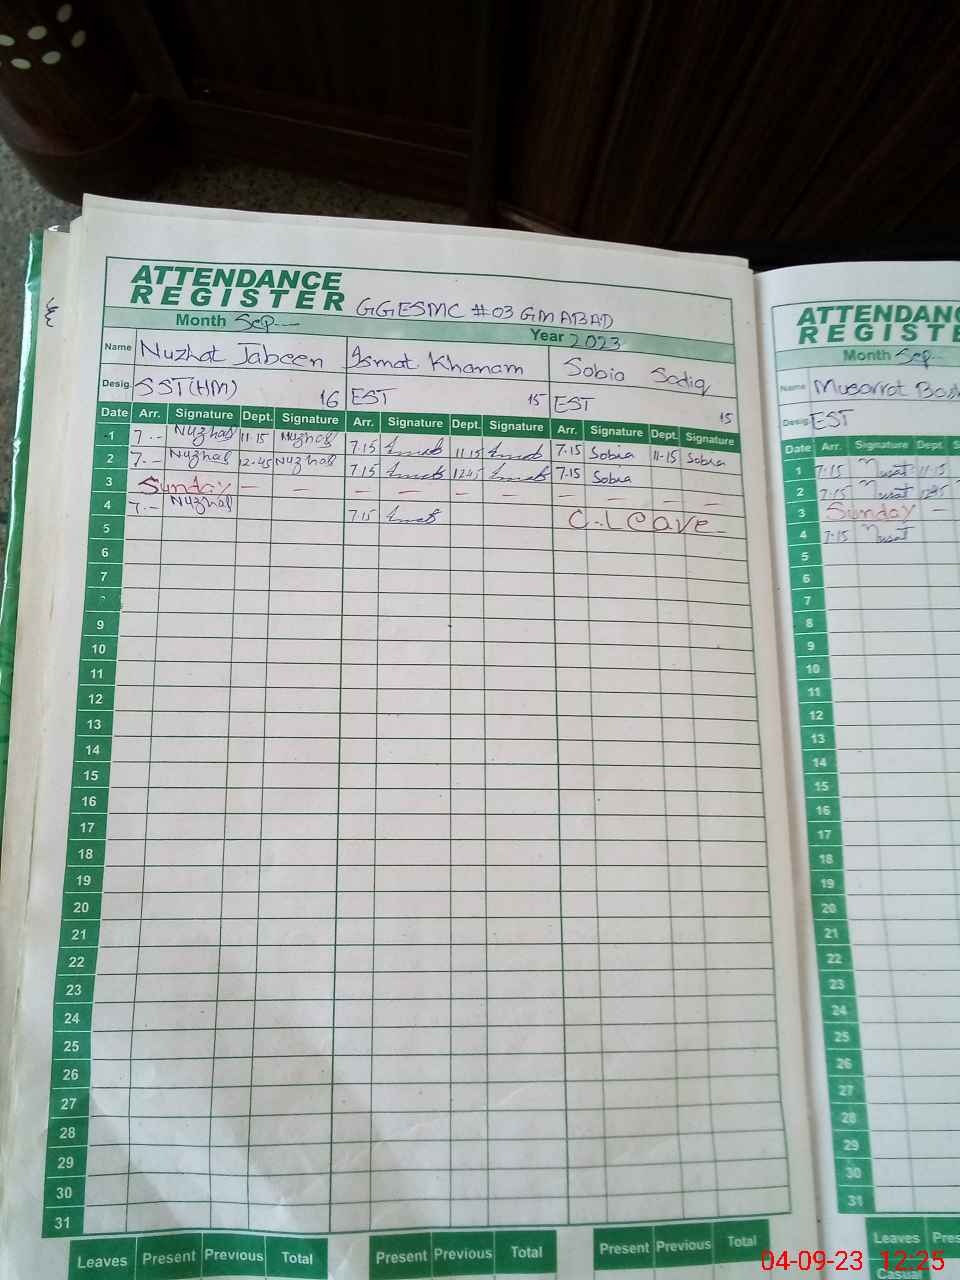 ATTENDANCE
REGISTER GGESMC #03 GMABAD
Month Sep Year 2023
Name Nuzhat Jabeen Ismat Khanam Sobia Sadiq
Desig. SST(HM) 16 EST 15 EST 15
Date Arr. Signature Dept. Signature Arr. Signature Dept. Signature Arr. Signature Dept. Signature
1 7.-- Nuzhat 11-15 Nuzhat 7.15 11.15 7.15 Sobia 11-15 Sobia
2 7.-- Nuzhat 12.45 Nuzhat 7.15 12.45 7.15 Sobia
3 Sunday — — — — — — — — — —
4 7.-- Nuzhat 7.15 C.Leave
5
6
7
9
10
11
12
13
14
15
16
17
18
19
20
21
22
23
24
25
26
27
28
29
30
31
Leaves Present Previous Total Present Previous Total Present Previous Total
ATTENDANC
REGISTE
Month Sep
Name Musarrat
Desig. EST
Date Arr. Signature Dept. S
1 7:15 Musat 11-15
2 7:15 Musat 12:45
3 Sunday —
4 7:15 Musat
5
6
7
8
9
10
11
12
13
14
15
16
17
18
19
20
21
22
23
24
25
26
27
28
29
30
31
Leaves Pres
Casual
04-09-23 12:25